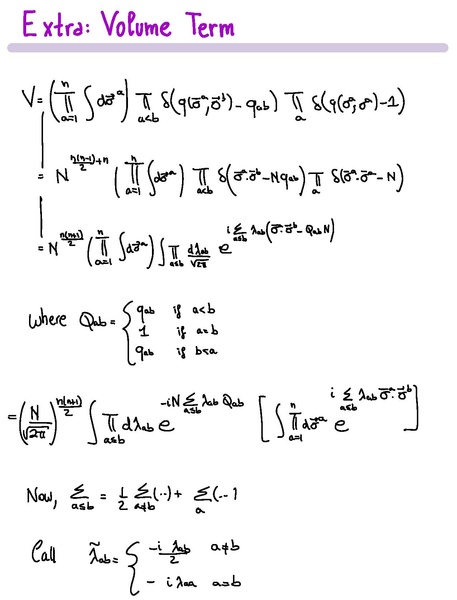 Extra: Volume Term
V = (∏_{a=1}^{n} ∫ dσ⃗^a) ∏_{a<b} δ(q(σ⃗^a, σ⃗^b) - q_{ab}) ∏_a δ(q(σ⃗^a, σ⃗^a) - 1)
= N^{n(n-1)/2 + n} (∏_{a=1}^{n} ∫ dσ⃗^a) ∏_{a<b} δ(σ⃗^a·σ⃗^b - N q_{ab}) ∏_a δ(σ⃗^a·σ⃗^a - N)
= N^{n(n+1)/2} (∏_{a=1}^{n} ∫ dσ⃗^a) ∫ ∏_{a≤b} dλ_{ab}/√2π e^{i ∑_{a≤b} λ_{ab}(σ⃗^a·σ⃗^b - Q_{ab} N)}
where Q_{ab} = { q_{ab} if a<b
1 if a=b
q_{ab} if b<a
= (N/√2π)^{n(n+1)/2} ∫ ∏_{a≤b} dλ_{ab} e^{-iN ∑_{a≤b} λ_{ab} Q_{ab}} [∫ ∏_{a=1}^{n} dσ⃗^a e^{i ∑_{a≤b} λ_{ab} σ⃗^a·σ⃗^b}]
Now, ∑_{a≤b} = 1/2 ∑_{a≠b} (··) + ∑_a (··)
Call λ̃_{ab} = { -i λ_{ab}/2 a≠b
- i λ_{aa} a=b